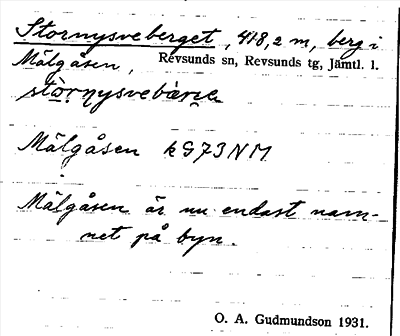 Stornysveberget, 418,2 m, berg i
Mälgåsen, Revsunds sn, Revsunds tg, Jämtl. l.
Mälgåsen kG73NM
Mälgåsen är nu endast nam-
net på byn.
O. A. Gudmundson 1931.